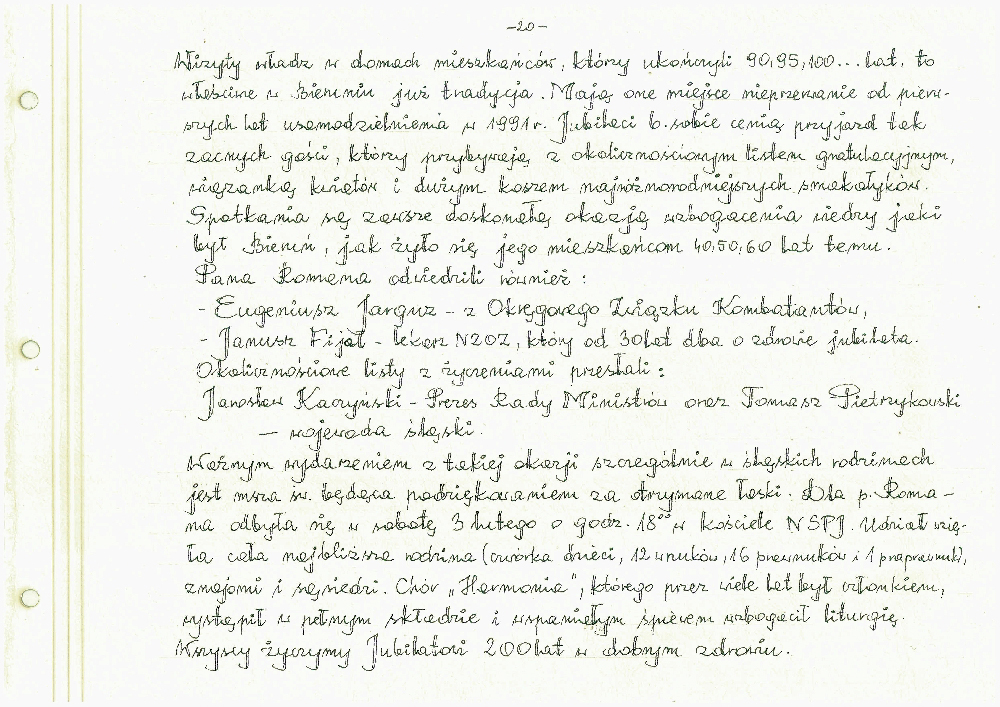 -20-
Wizyty władz w domach mieszkańców, którzy ukończyli 90,95,100... lat, to
właściwie w Bieruniu już tradycja. Mają one miejsce nieprzerwanie od pierw-
szych lat usamodzielnienia w 1991r. Jubilaci b. sobie cenią przyjazd tak
zacnych gości, którzy przybywają z okolicznościowym listem gratulacyjnym,
wiązanką kwiatów i dużym koszem najróżnorodniejszych smakołyków.
Spotkania są zawsze doskonałą okazją wzbogacenia wiedzy jaki
był Bieruń, jak żyło się jego mieszkańcom 40,50,60 lat temu.
Pana Romana odwiedzili również:
- Eugeniusz Jarguz - z Okręgowego Związku Kombatantów,
- Janusz Fijał - lekarz NZOZ, który od 30 lat dba o zdrowie jubilata.
Okolicznościowe listy z życzeniami przesłali:
Jarosław Kaczyński - Prezes Rady Ministrów oraz Tomasz Pietrzykowski
- wojewoda śląski.
Ważnym wydarzeniem z takiej okazji szczególnie w śląskich rodzinach
jest msza św. będąca podziękowaniem za otrzymane łaski. Dla p. Roma-
na odbyła się w sobotę 3 lutego o godz. 18⁰⁰ w kościele NSPJ. Udział wzię-
ła cała najbliższa rodzina (czwórka dzieci, 12 wnuków, 16 prawnuków i 1 praprawnuk),
znajomi i sąsiedzi. Chór „Harmonia", którego przez wiele lat był członkiem,
wystąpił w pełnym składzie i wspaniałym śpiewem wzbogacił liturgię.
Wszyscy życzymy Jubilatowi 200 lat w dobrym zdrowiu.